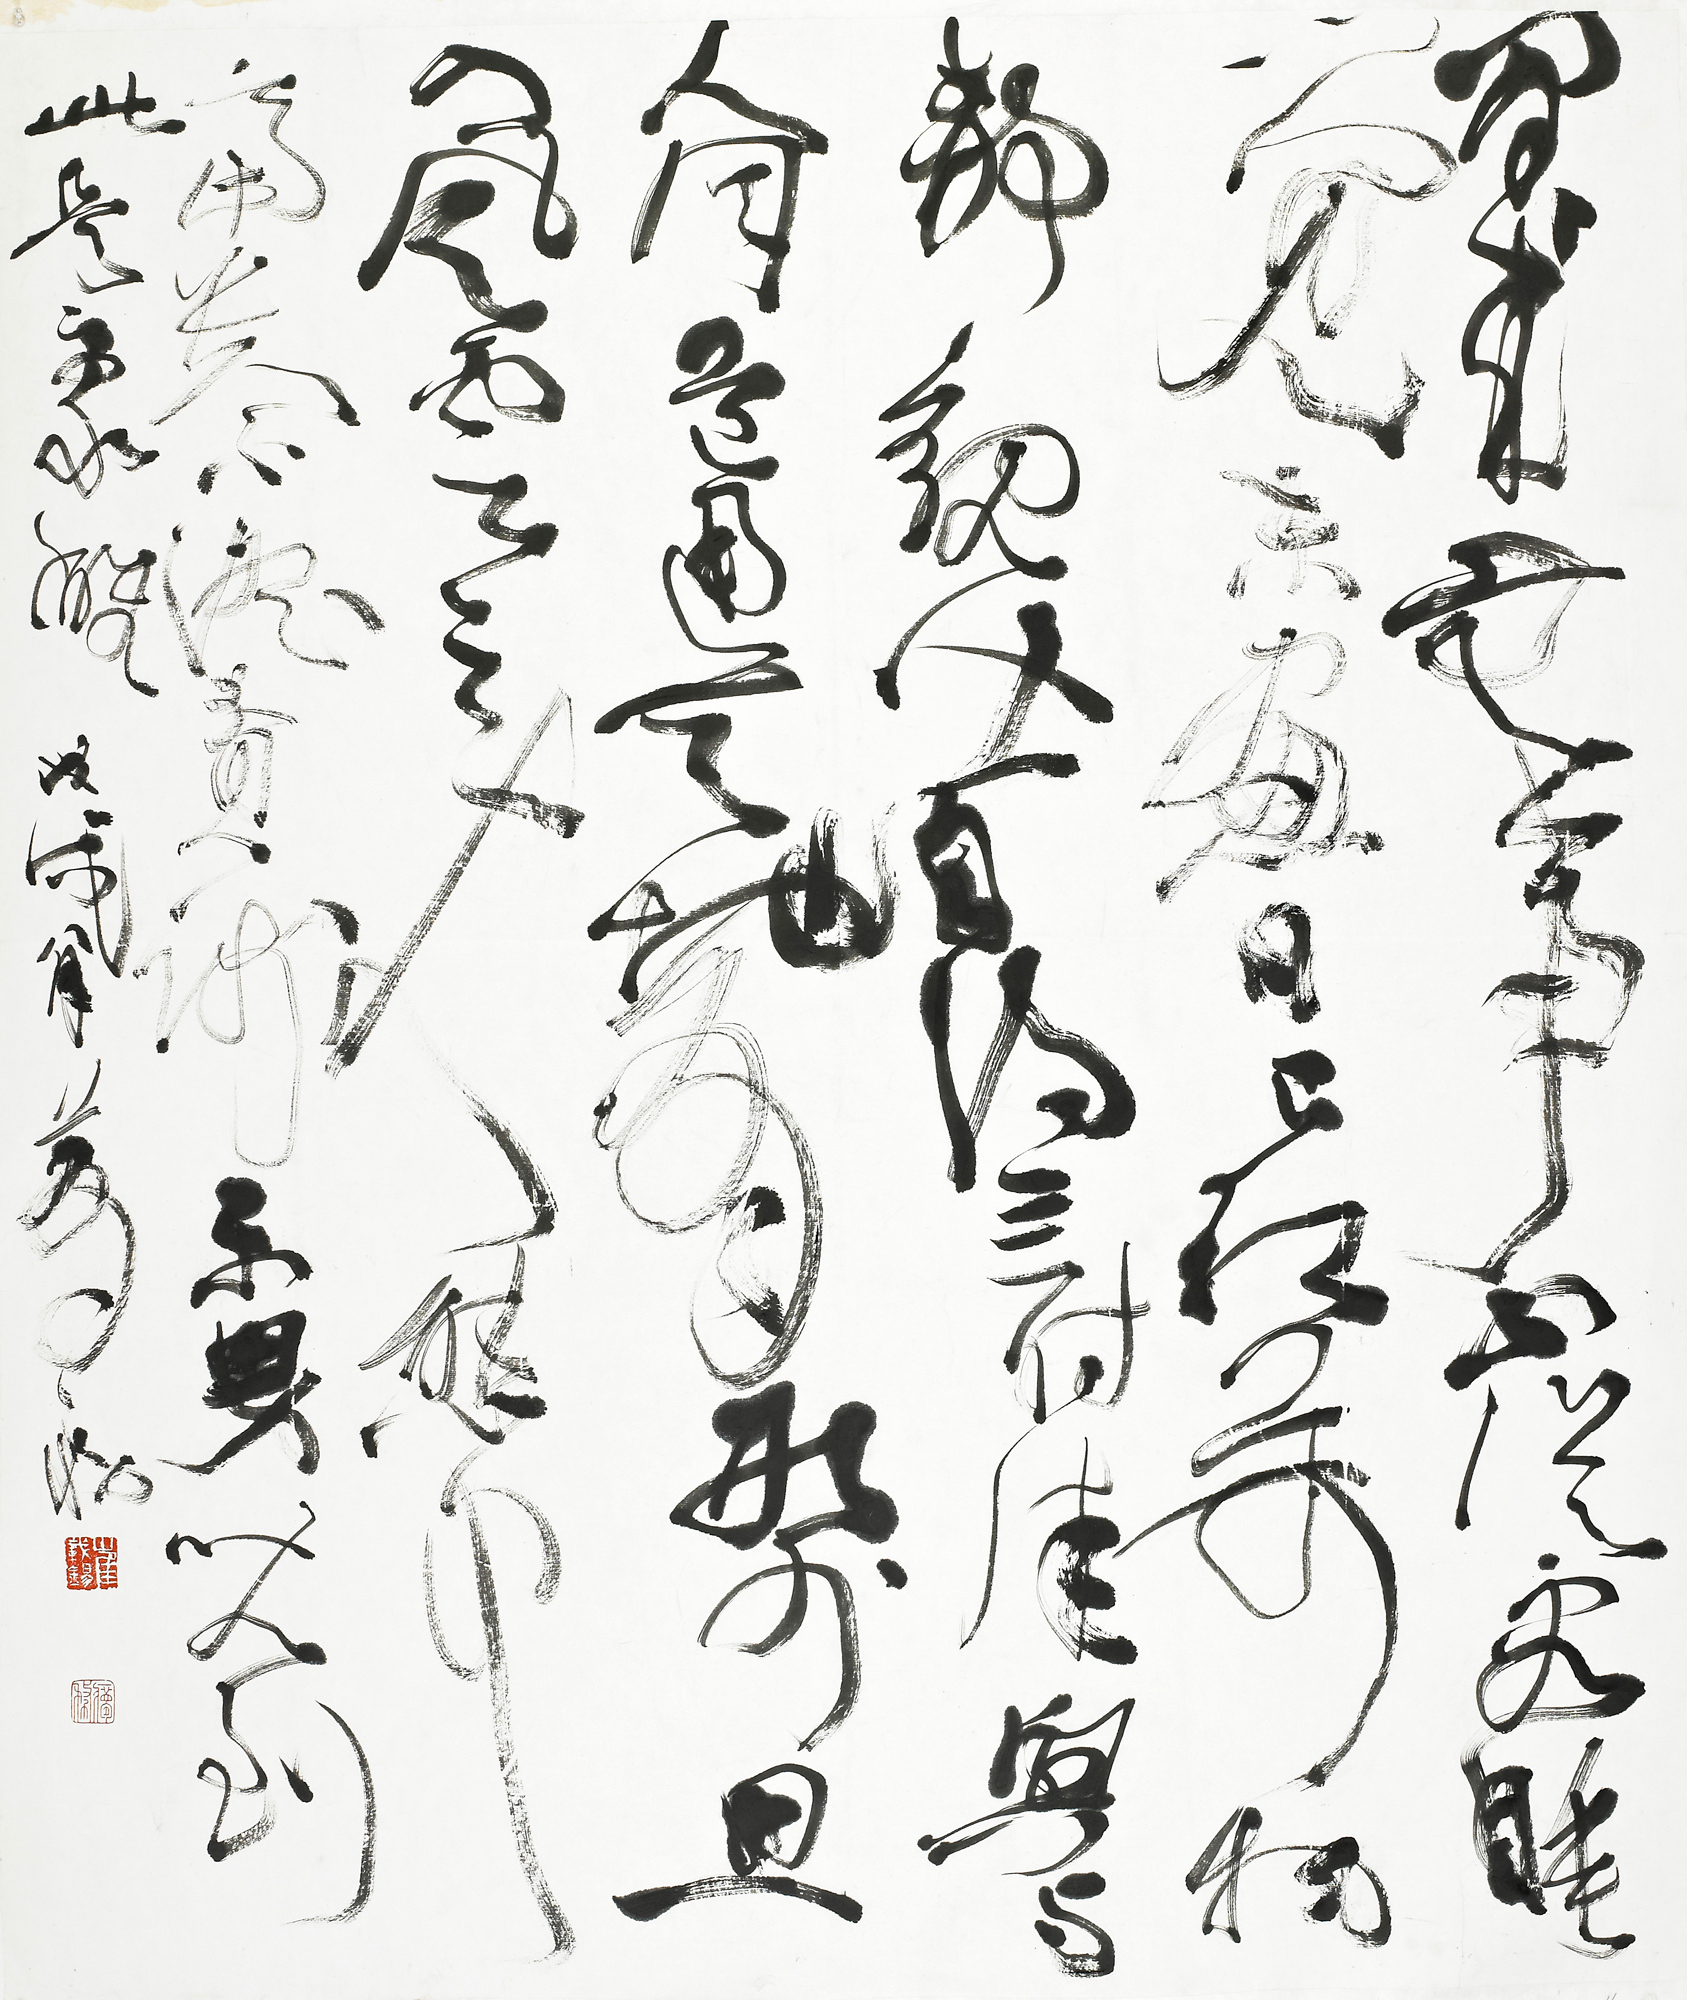 閒來無事不從容睡
覺東窗日已紅萬物
靜觀皆自得四時佳興與
人同道通天地有形外思
入風雲變態中
富貴不淫貧賤樂男兒到
此是豪雄